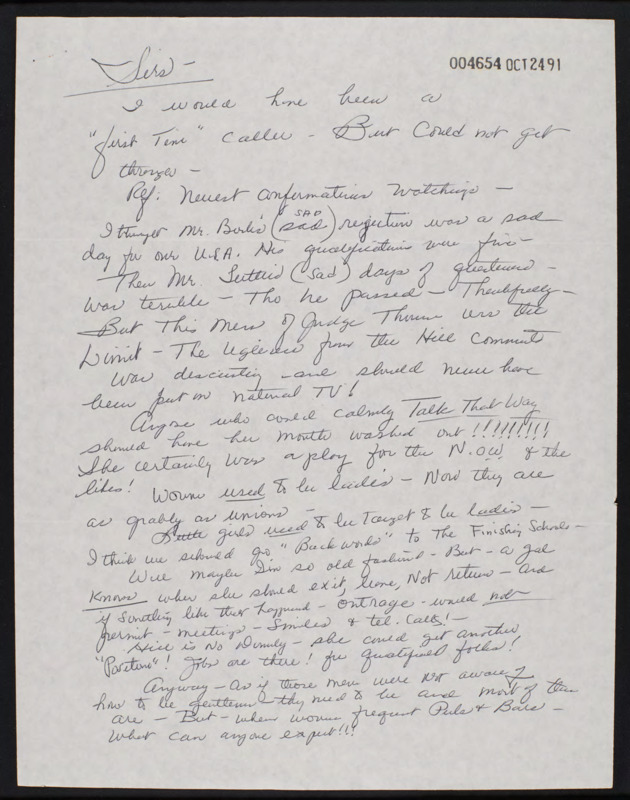 004654 OCT 24 91
Sirs -
I would have been a
"first Time" caller - But Could not get
through -
Ref: Newest Confirmations Watchings -
I thought Mr. Bork's (sad SAD) rejection was a sad
day for our U.S.A. His qualifications were fine -
Then Mr. (Sad) days of
was terrible - Tho he passed - Thankfully -
But This Mess of Judge Thomas was the
Limit - The Ugliness from the Hill Comments
was disgusting - and should never have
been put on National TV!
Anyone who could calmly Talk That Way
should have her mouth washed out !!!!!!!!!
She certainly was a ploy for the N.O.W. & the
likes! Women used to be ladies - Now they are
as as unions -
Little girls used to be taught to be ladies -
I think we should go "Backwards" to The Finishing Schools -
Well maybe I'm so old fashioned - But - a gal
Knows when she should exit, leave, Not return - and
if something like that happened - Outrage - would not
permit - meetings - Smiles & tel. Calls! -
Hill is No Dummy - she could get another
"Position"! Jobs are there! for qualified folks!
Anyway - as if those men were not aware of
how to be gentlemen - they need to be and most of them
are - But - when women frequent Pubs & Bars -
What can anyone expect!!!